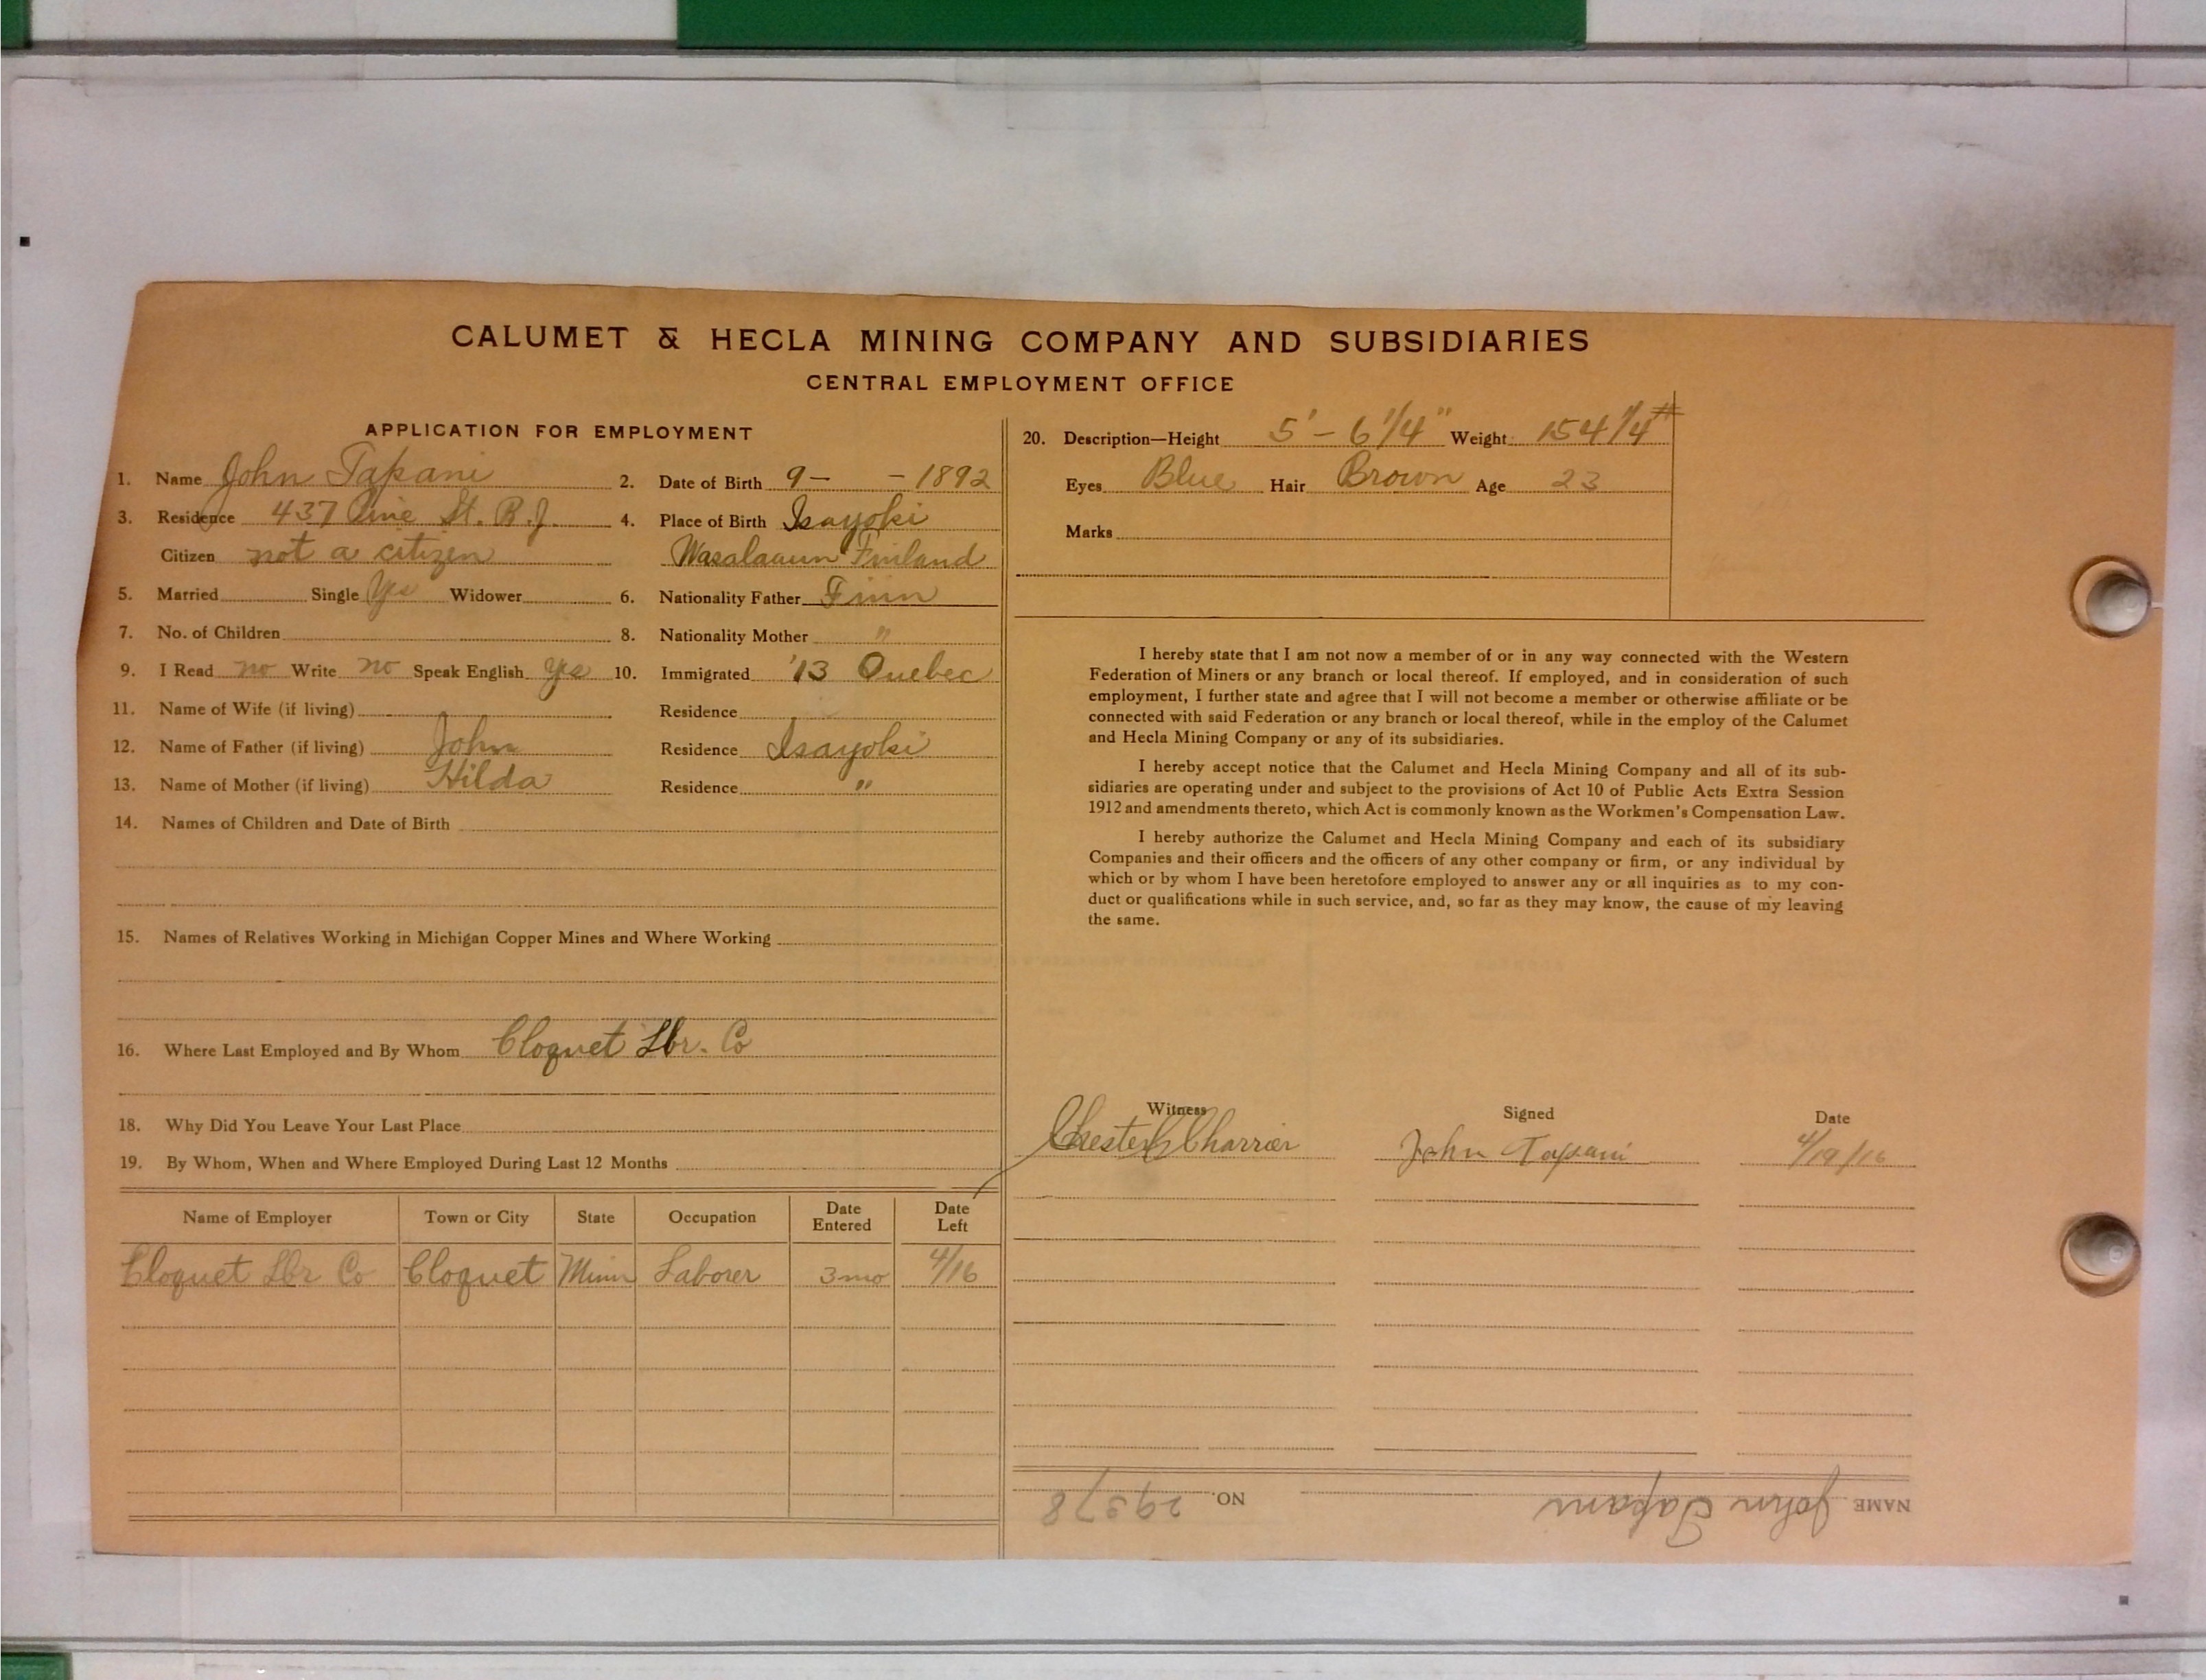 CALUMET & HECLA MINING COMPANY AND SUBSIDIARIES
CENTRAL EMPLOYMENT OFFICE
APPLICATION FOR EMPLOYMENT
1. Name John Tapani 2. Date of Birth 9- - 1892
3. Residence 437 Pine St. R.J. 4. Place of Birth Isayoki
Citizen not a citizen Wasalaaun Finland
5. Married Single Yes Widower 6. Nationality Father Finn
7. No. of Children 8. Nationality Mother "
9. I Read no Write no Speak English yes 10. Immigrated '13 Quebec
11. Name of Wife (if living) Residence
12. Name of Father (if living) John Residence Isayoki
13. Name of Mother (if living) Hilda Residence "
14. Names of Children and Date of Birth
15. Names of Relatives Working in Michigan Copper Mines and Where Working
16. Where Last Employed and By Whom Cloquet Lbr. Co
18. Why Did You Leave Your Last Place
19. By Whom, When and Where Employed During Last 12 Months
Name of Employer Town or City State Occupation Date Entered Date Left
Cloquet Lbr Co Cloquet Minn Laborer 3 mo 4/16
20. Description—Height 5' - 6 1/4" Weight 154 1/4 #
Eyes Blue Hair Brown Age 23
Marks
I hereby state that I am not now a member of or in any way connected with the Western
Federation of Miners or any branch or local thereof. If employed, and in consideration of such
employment, I further state and agree that I will not become a member or otherwise affiliate or be
connected with said Federation or any branch or local thereof, while in the employ of the Calumet
and Hecla Mining Company or any of its subsidiaries.
I hereby accept notice that the Calumet and Hecla Mining Company and all of its sub-
sidiaries are operating under and subject to the provisions of Act 10 of Public Acts Extra Session
1912 and amendments thereto, which Act is commonly known as the Workmen's Compensation Law.
I hereby authorize the Calumet and Hecla Mining Company and each of its subsidiary
Companies and their officers and the officers of any other company or firm, or any individual by
which or by whom I have been heretofore employed to answer any or all inquiries as to my con-
duct or qualifications while in such service, and, so far as they may know, the cause of my leaving
the same.
Witness Signed Date
Chester G Charrier John Tapani 4/19/16
NAME John Tapani NO. 29378